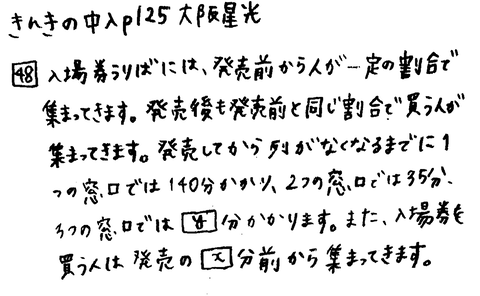 きんきの中入p125大阪星光
48 入場券うりばには、発売前から人が一定の割合で
集まってきます。発売後も発売前と同じ割合で買う人が
集まってきます。発売してから列がなくなるまでに1
つの窓口では140分かかり、2つの窓口では35分、
3つの窓口では サ 分かかります。また、入場券を
買う人は発売の シ 分前から集まってきます。